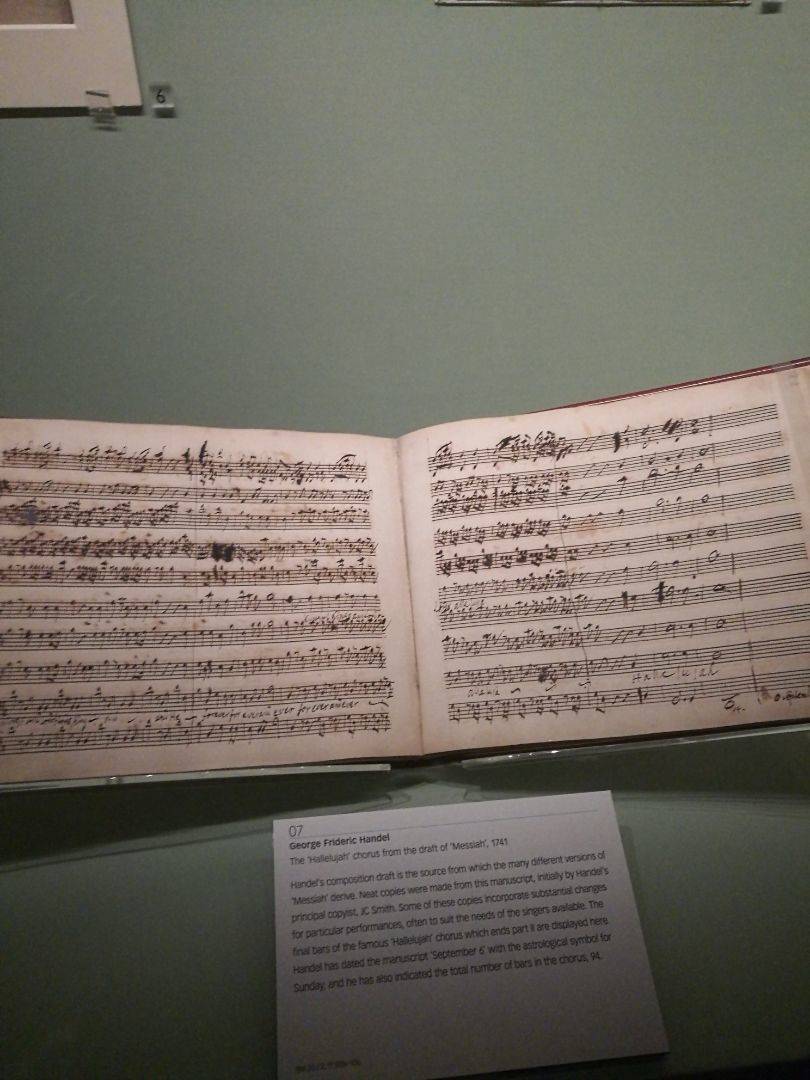 6
for ever for ever and ever ever for ever and ever
Hallelujah
07
George Frideric Handel
The 'Hallelujah' chorus from the draft of 'Messiah', 1741
Handel's composition draft is the source from which the many different versions of
'Messiah' derive. Neat copies were made from this manuscript, initially by Handel's
principal copyist, JC Smith. Some of these copies incorporate substantial changes
for particular performances, often to suit the needs of the singers available. The
final bars of the famous 'Hallelujah' chorus which ends part II are displayed here.
Handel has dated the manuscript 'September 6' with the astrological symbol for
Sunday, and he has also indicated the total number of bars in the chorus, 94.